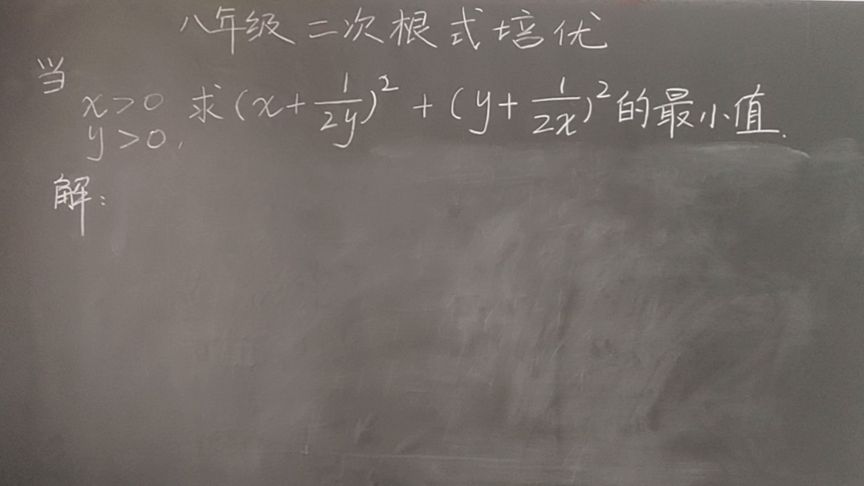 八年级二次根式培优
当 x>0 求(x+\frac{1}{2y})²+(y+\frac{1}{2x})²的最小值.
y>0,
解: